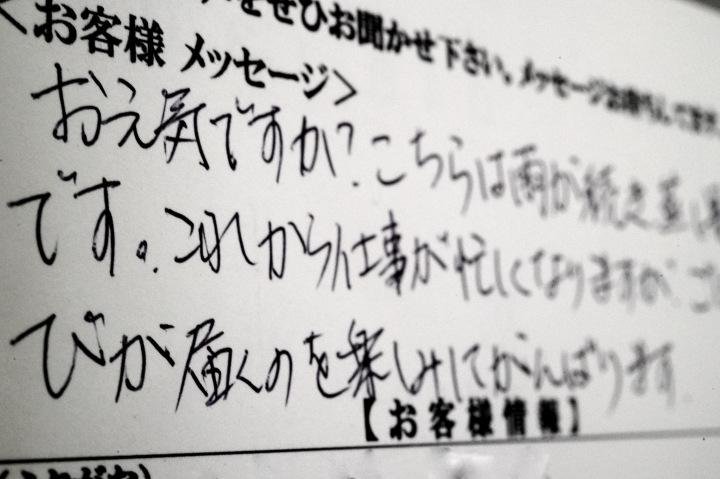 をぜひお聞かせ下さい。メッセージお待ちしてます
<お客様 メッセージ>
お元気ですか?こちらは雨が続き蒸し暑
です。これから仕事が忙しくなりますが、こ
びが届くのを楽しみにしてがんばります。
【お客様情報】
(ふりがな)